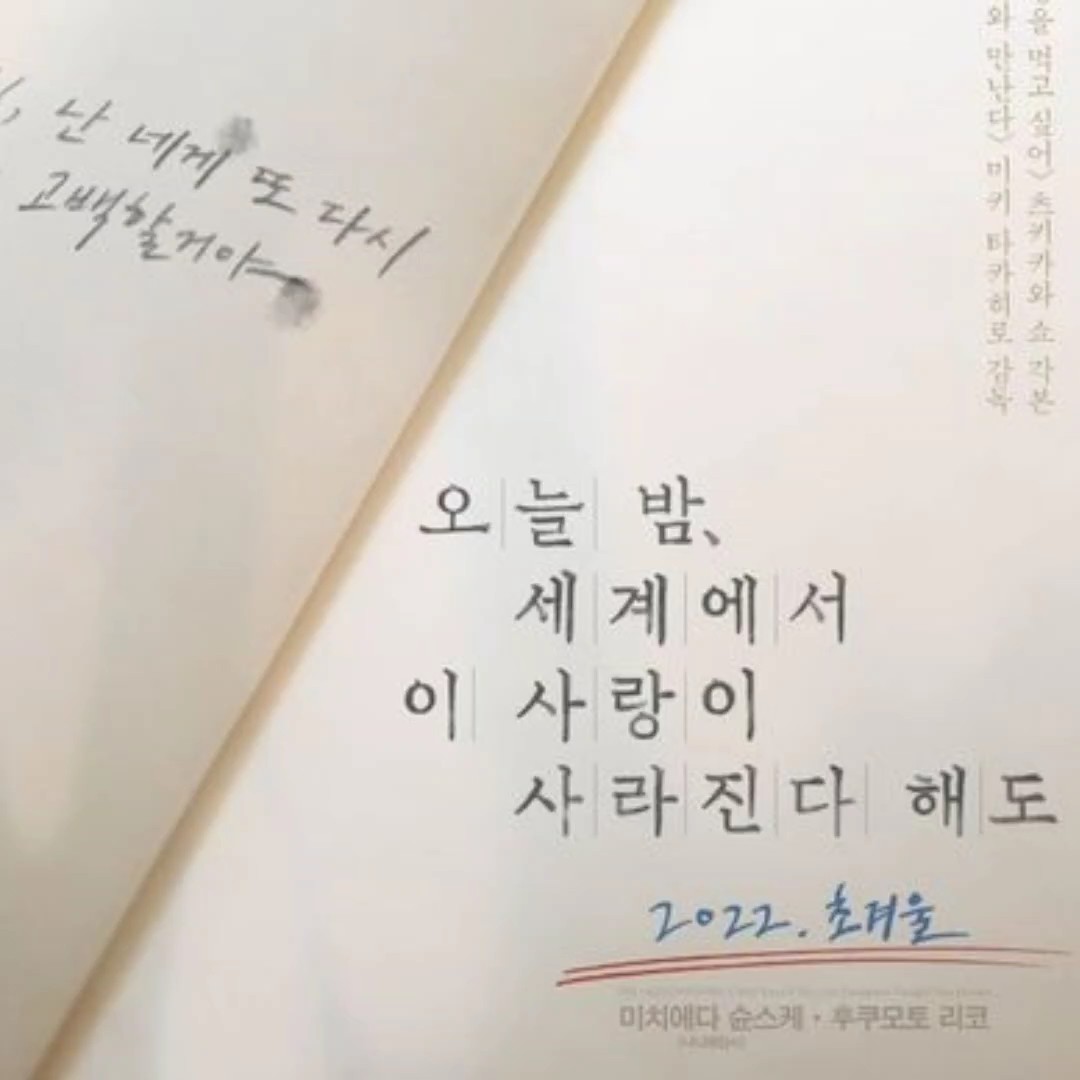 난 네게 또 다시
고백할거야
을 먹고 싶어> 츠키카와 쇼 각본
와 만난다> 미키 타카히로 감독
오늘 밤、
세계에서
이 사랑이
사라진다 해도
2022. 초겨울
미치에다 슌스케 · 후쿠모토 리코